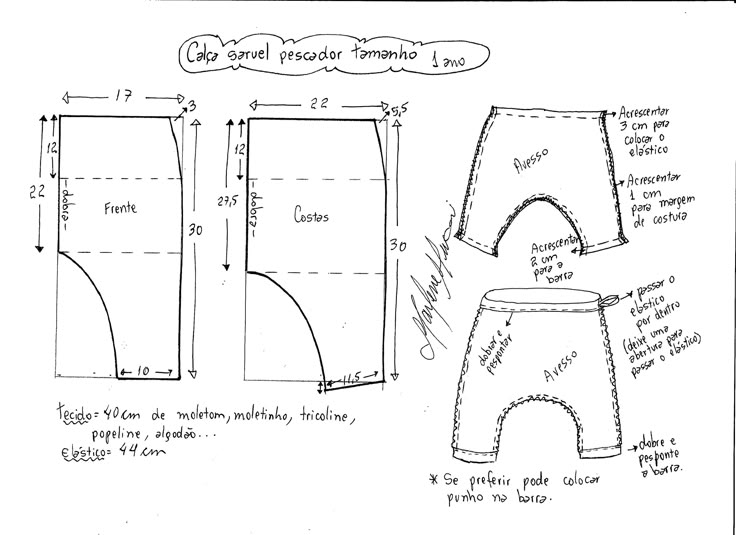 Calça saruel pescador tamanho 1 ano
17
3
12
22
dobra
Frente
30
10
22
5,5
12
27,5
dobra
Costas
30
11,5
Avesso
Acrescentar
3 cm para
colocar o
elástico
Acrescentar
1 cm
para margem
de costura
Acrescentar
2 cm
para a
barra
dobrar e
pespontar
Avesso
passar o
elástico
por dentro
(deixe uma
abertura para
passar o elástico)
dobre e
pesponte
a barra.
tecido = 40 cm de moletom, moletinho, tricoline,
popeline, algodão...
elástico = 44 cm
* Se preferir pode colocar
punho na barra.